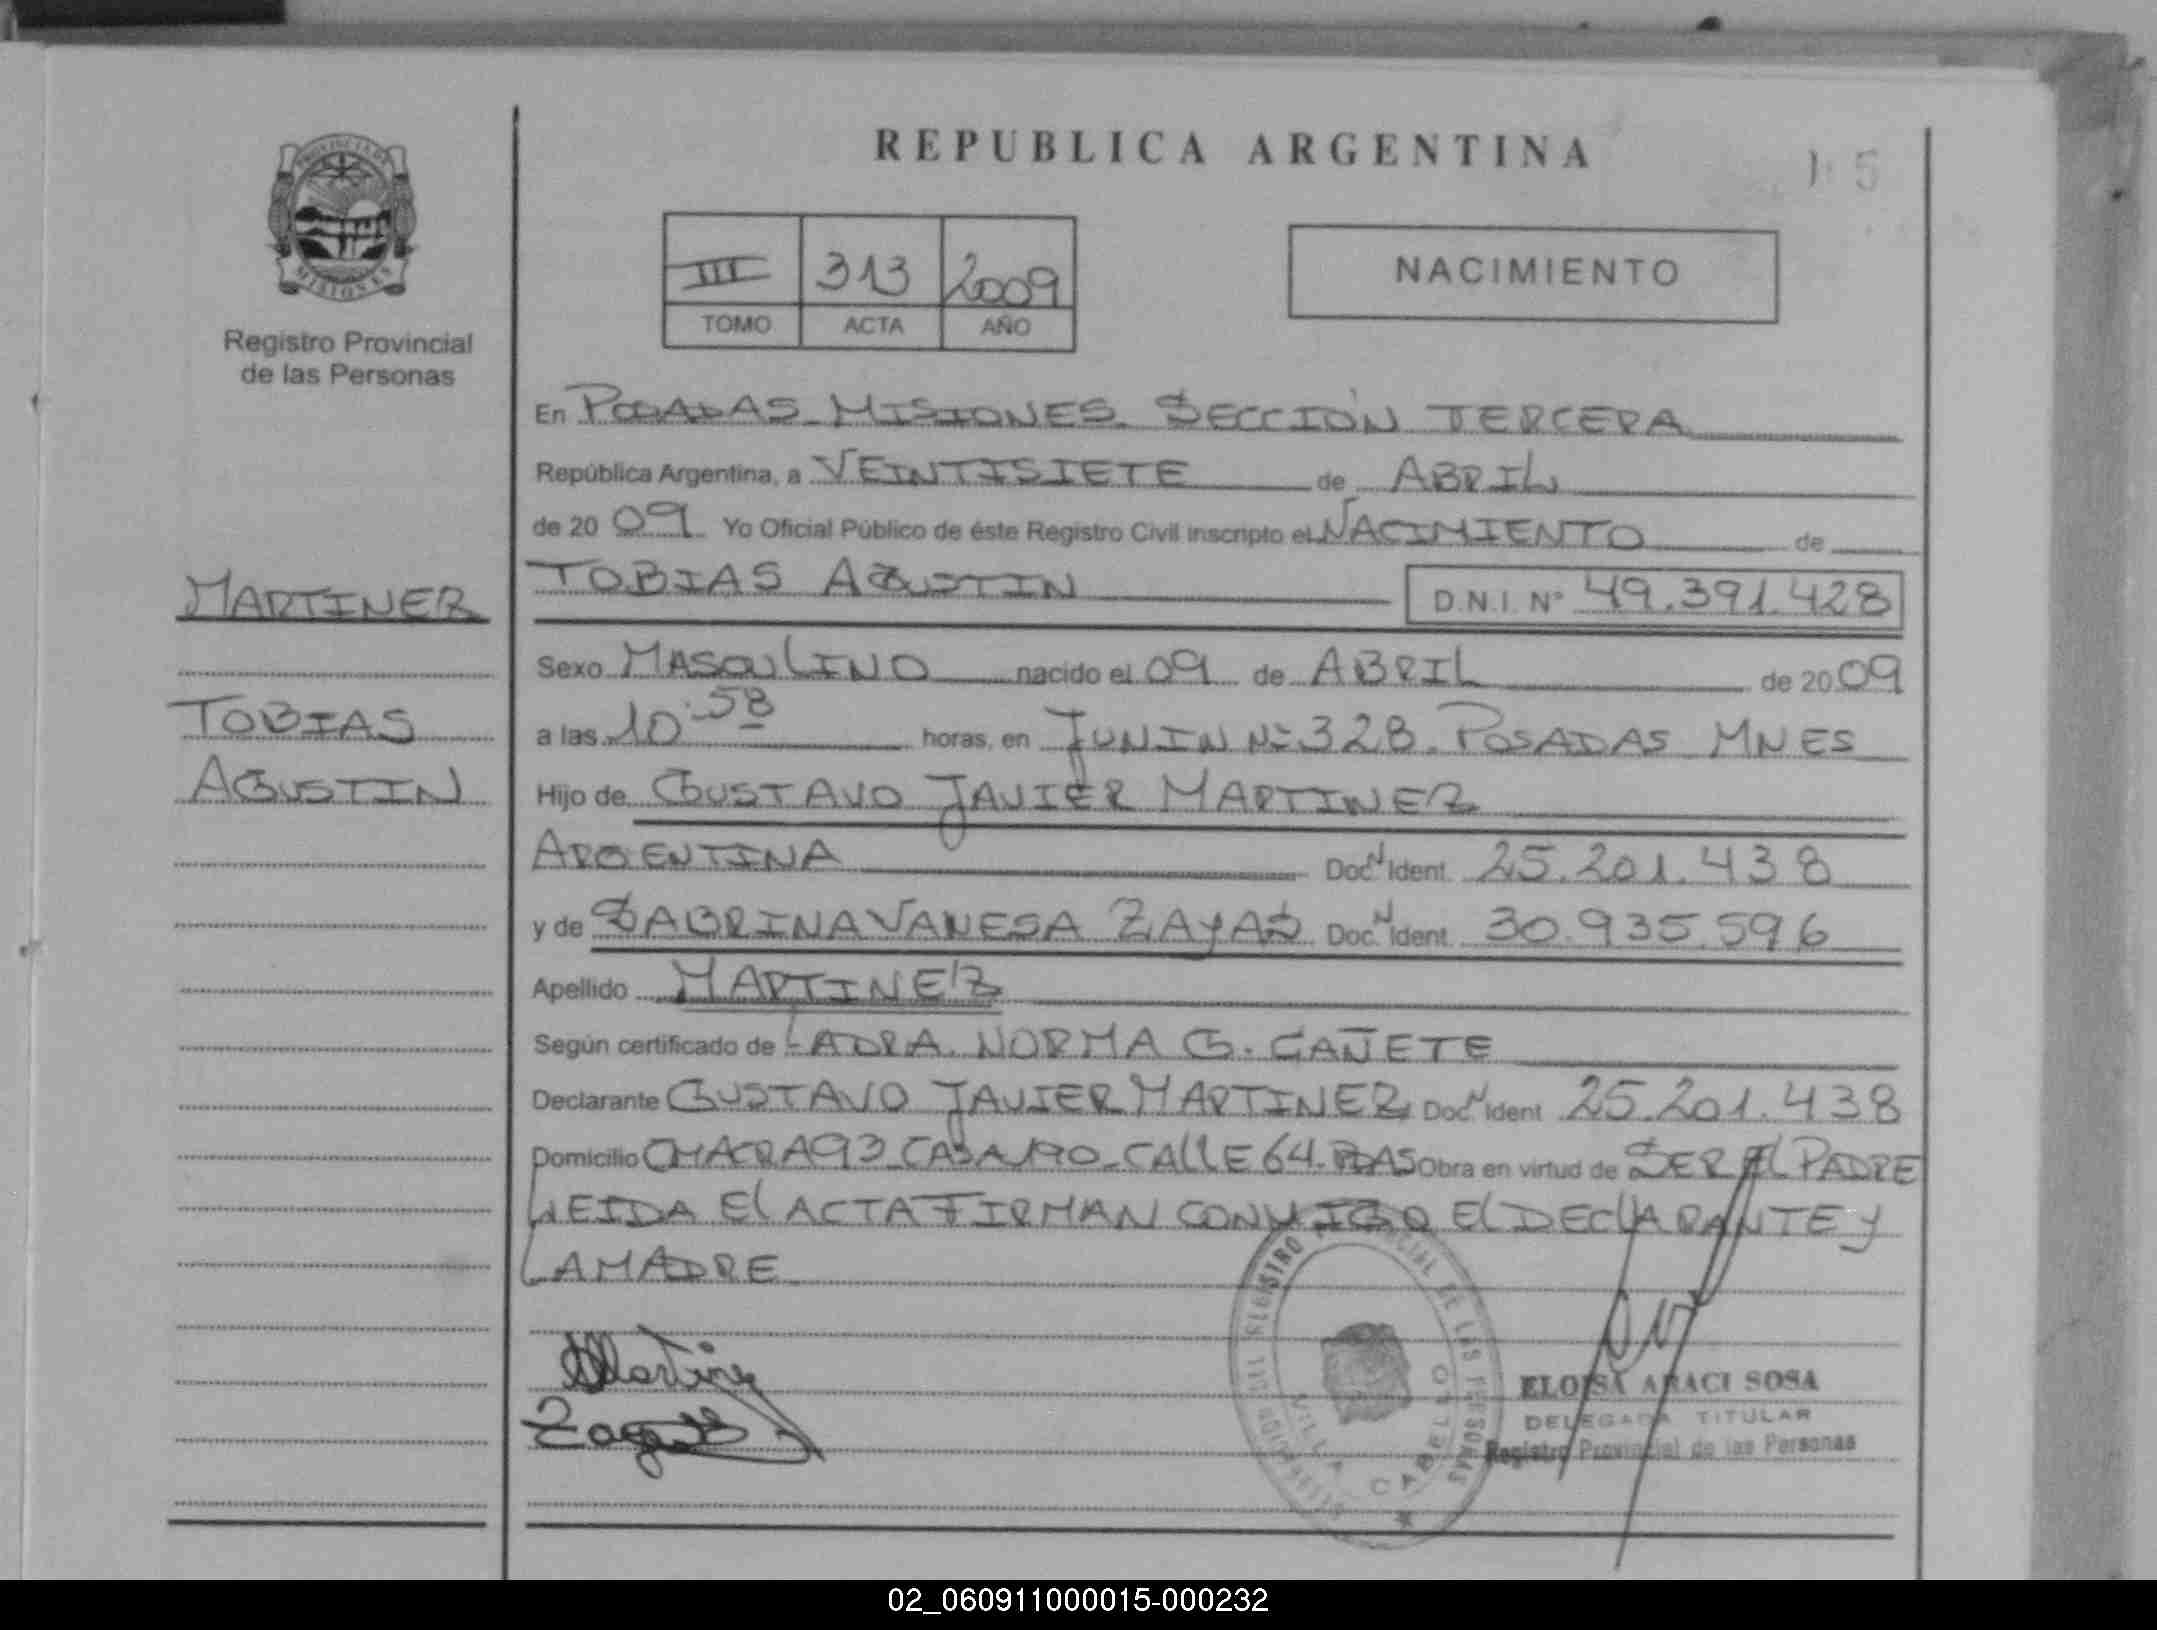 REPUBLICA ARGENTINA
PROVINCIA DE
MISIONES
Registro Provincial
de las Personas
III 313 2009
TOMO ACTA AÑO
NACIMIENTO
En POSADAS MISIONES. SECCIÓN TERCERA
República Argentina, a VEINTISIETE de ABRIL
de 20 09 Yo Oficial Público de éste Registro Civil inscripto el NACIMIENTO de
TOBIAS AGUSTIN D.N.I. Nº 49.391.428
MARTINEZ
Sexo MASCULINO nacido el 09 de ABRIL de 20 09
TOBIAS
a las 10:58 horas, en JUNIN Nº 328. POSADAS MNES
AGUSTIN
Hijo de GUSTAVO JAVIER MARTINEZ
ARGENTINA Doc. N Ident. 25.201.438
y de SABRINA VANESA ZAYAS Doc. N Ident. 30.935.596
Apellido MARTINEZ
Según certificado de LA DRA. NORMA G. CAÑETE
Declarante GUSTAVO JAVIER MARTINEZ Doc. N Ident 25.201.438
Domicilio CHACRA 93 CASA 190 CALLE 64. PDAS Obra en virtud de SER EL PADRE
LEIDA El ACTA FIRMAN CONMIGO El DEClARANTE Y
LA MADRE
Martinez
Zayas
REGISTRO PROVINCIAL DE LAS PERSONAS
VILLA CABELLO
ELOISA ARACI SOSA
DELEGADA TITULAR
Registro Provincial de las Personas
02_060911000015-000232